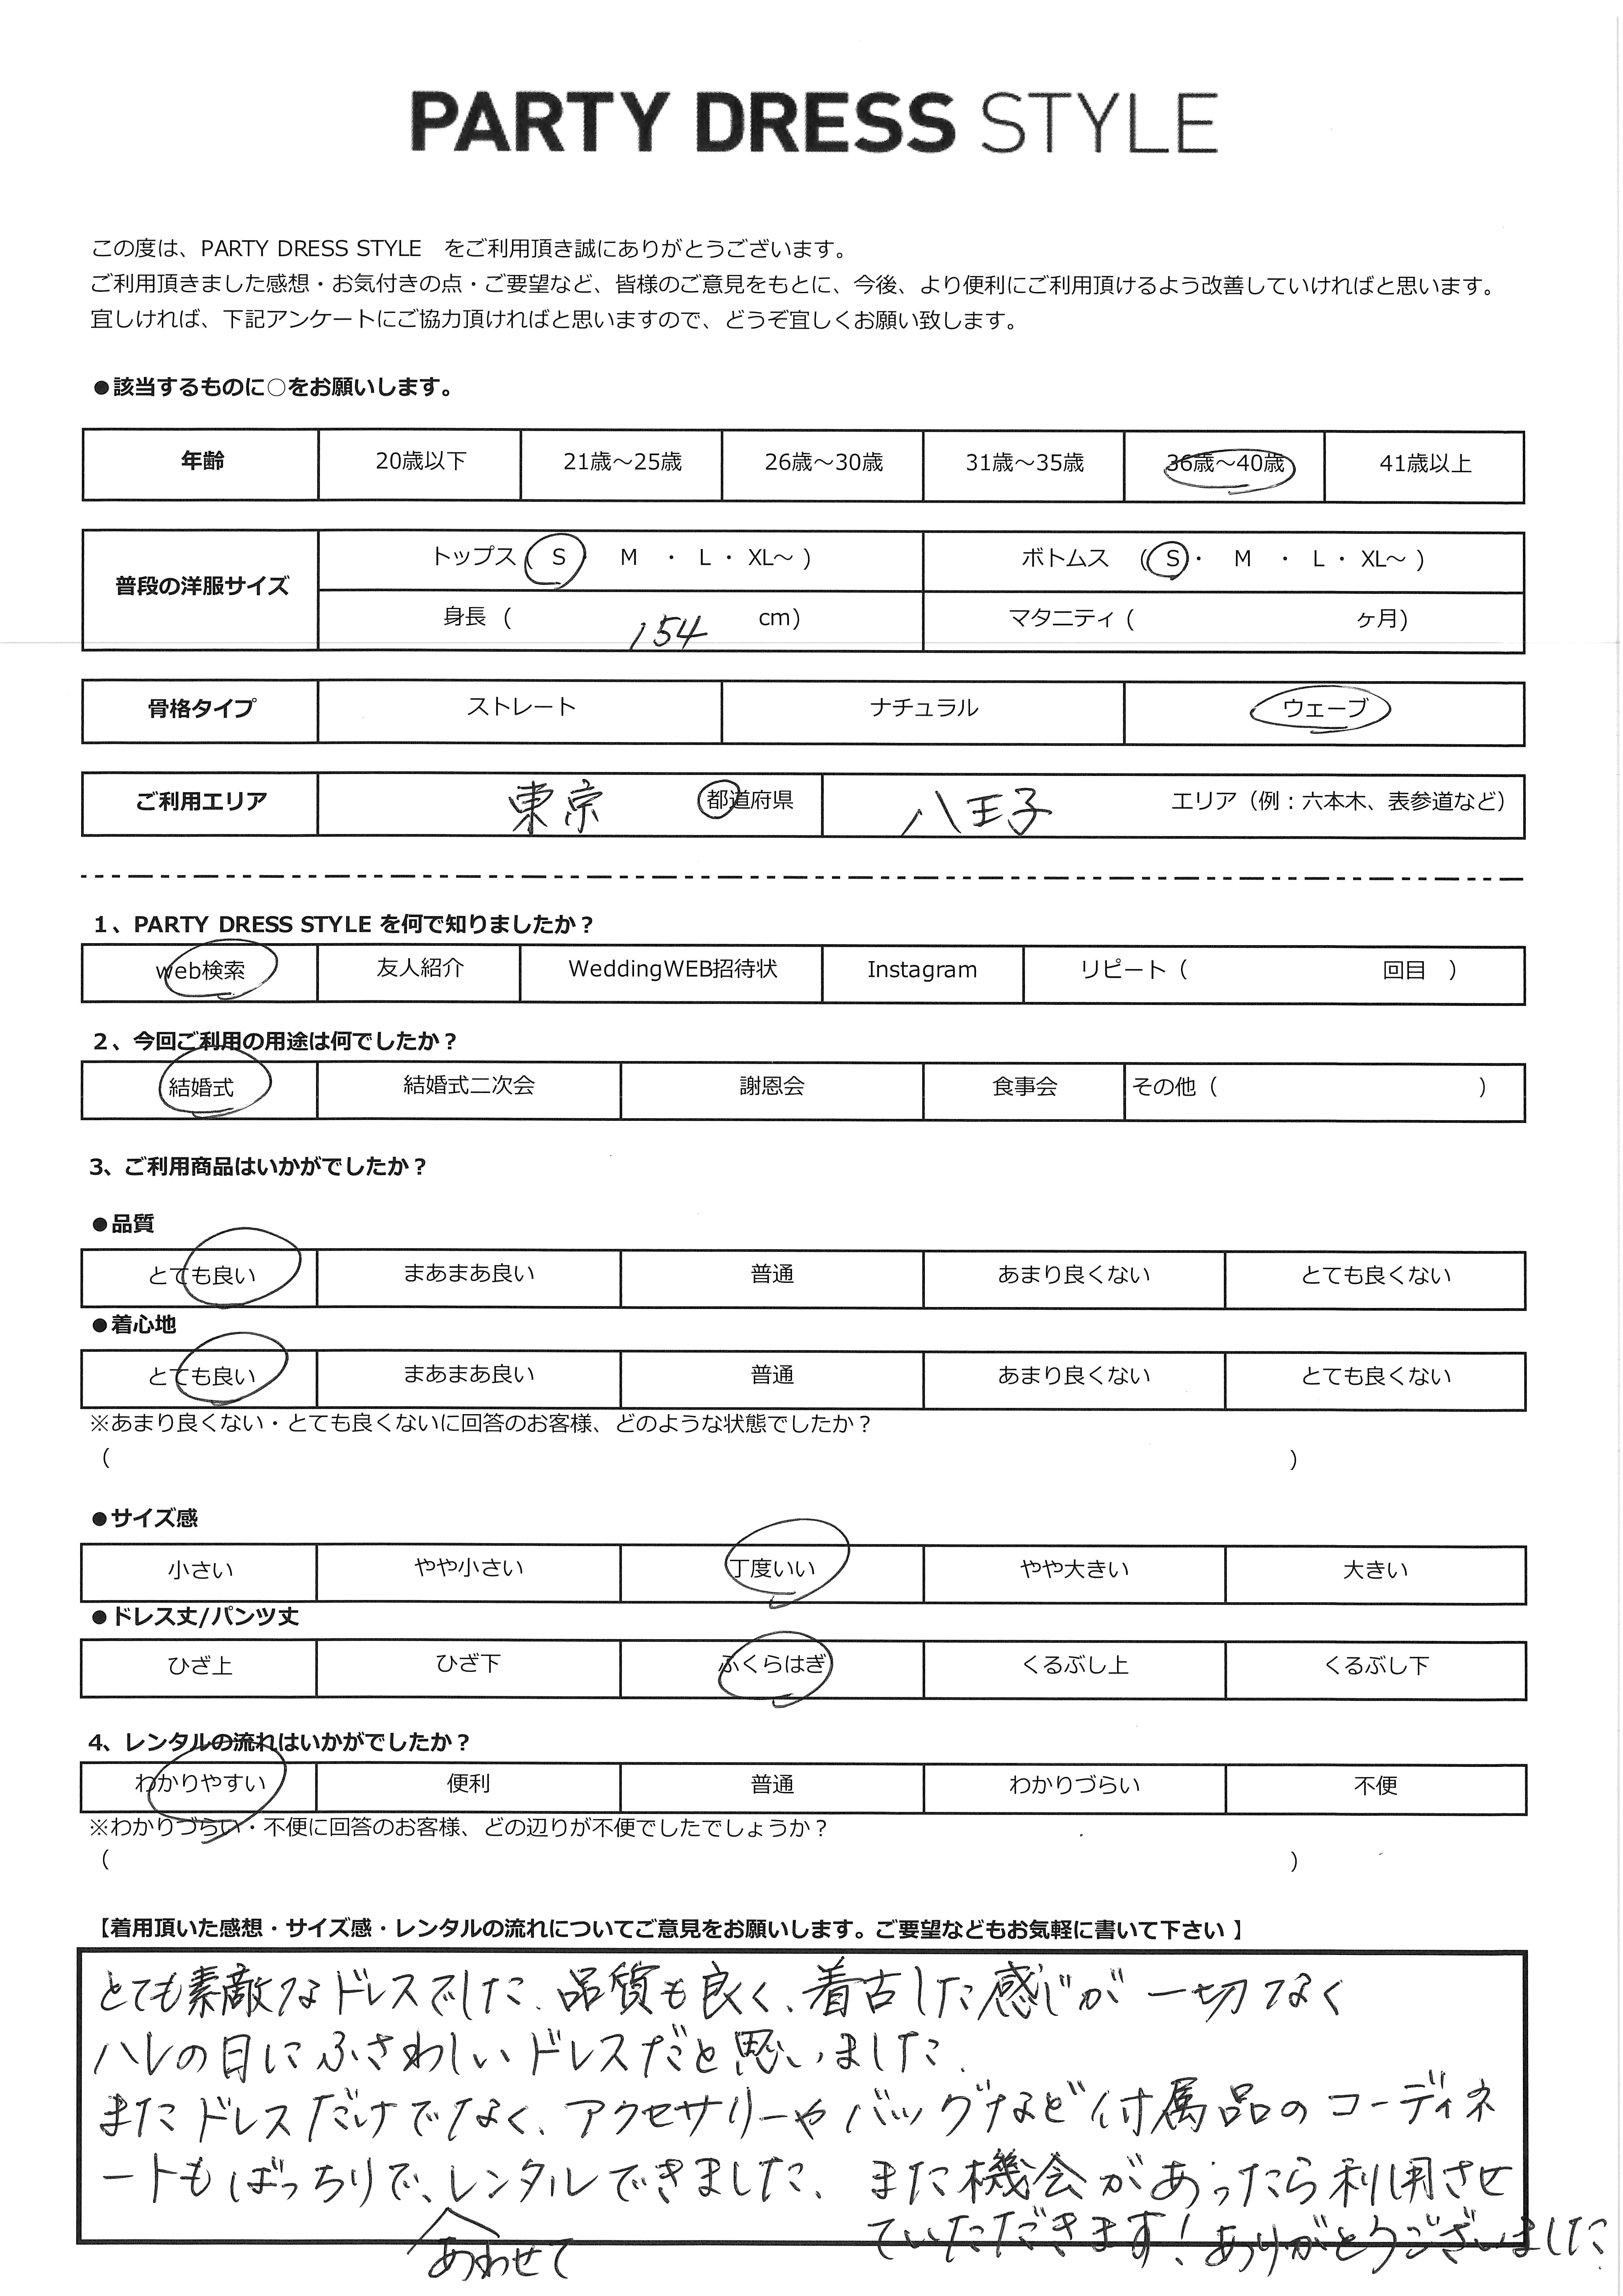 PARTY DRESS STYLE
この度は、PARTY DRESS STYLE　をご利用頂き誠にありがとうございます。
ご利用頂きました感想・お気付きの点・ご要望など、皆様のご意見をもとに、今後、より便利にご利用頂けるよう改善していければと思います。
宜しければ、下記アンケートにご協力頂ければと思いますので、どうぞ宜しくお願い致します。
●該当するものに○をお願いします。
年齢 20歳以下 21歳～25歳 26歳～30歳 31歳～35歳 36歳～40歳 41歳以上
普段の洋服サイズ トップス ( S ・ M ・ L ・ XL～ ) ボトムス ( S ・ M ・ L ・ XL～ )
身長 ( 154 cm) マタニティ ( ヶ月)
骨格タイプ ストレート ナチュラル ウェーブ
ご利用エリア 東京 都道府県 八王子 エリア（例：六本木、表参道など）
1、PARTY DRESS STYLE を何で知りましたか？
web検索 友人紹介 WeddingWEB招待状 Instagram リピート（ 回目 ）
2、今回ご利用の用途は何でしたか？
結婚式 結婚式二次会 謝恩会 食事会 その他（ ）
3、ご利用商品はいかがでしたか？
●品質
とても良い まあまあ良い 普通 あまり良くない とても良くない
●着心地
とても良い まあまあ良い 普通 あまり良くない とても良くない
※あまり良くない・とても良くないに回答のお客様、どのような状態でしたか？
（ ）
●サイズ感
小さい やや小さい 丁度いい やや大きい 大きい
●ドレス丈/パンツ丈
ひざ上 ひざ下 ふくらはぎ くるぶし上 くるぶし下
4、レンタルの流れはいかがでしたか？
わかりやすい 便利 普通 わかりづらい 不便
※わかりづらい・不便に回答のお客様、どの辺りが不便でしたでしょうか？
（ ）
【着用頂いた感想・サイズ感・レンタルの流れについてご意見をお願いします。ご要望などもお気軽に書いて下さい 】
とても素敵なドレスでした、品質も良く、着古した感じが一切なく
ハレの日にふさわしいドレスだと思いました、
またドレスだけでなく、アクセサリーやバッグなど付属品のコーディネ
ートもばっちりで、レンタルできました、また機会があったら利用させ
あわせて
ていただきます！ありがとうございました